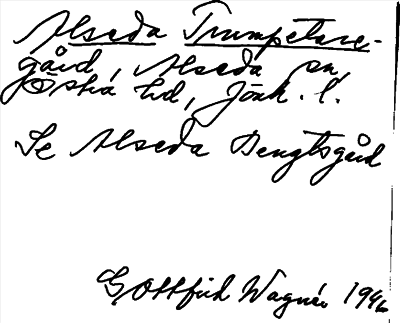 Alseda Trumpetare-
gård, Alseda sn,
Östra hd, Jönk. l.
Se Alseda Bengtsgård
Gottfrid Wagnér 1946